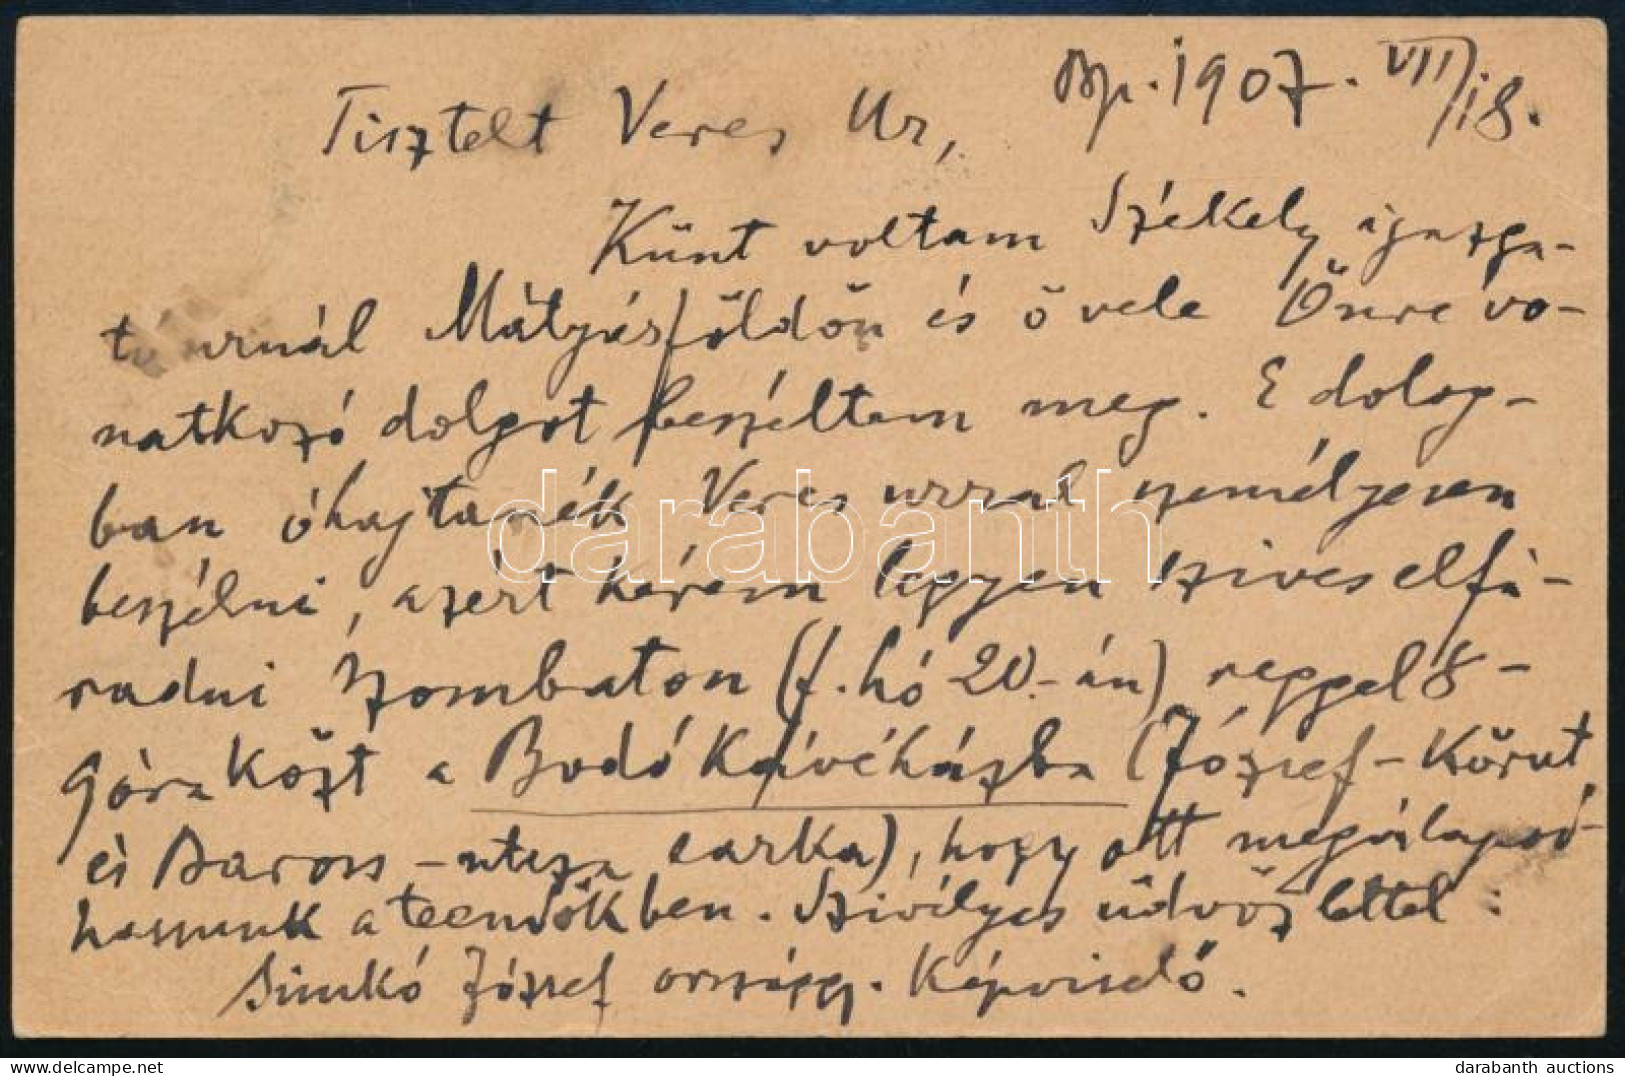 Bp. 1907. VII/18.
Tisztelt Veres Ur,
Künt voltam Székely igazga-
tó urnál Mátyásföldön és ő vele Önre vo-
natkozó dolgot beszéltem meg. E dolog-
ban óhajtanék Veres urral személyesen
beszélni, azért kérem legyen szives elfá-
radni szombaton (f. hó 20.-án) reggel 8-
9 óra közt a Bodó Kávéházba (József-Körut
és Baross-utcza sarka), hogy ott megállapod-
hassunk a teendőkben. Szívélyes üdvözlettel:
Simkó József országgy. Képviselő.
darabanth
darabanth auctions